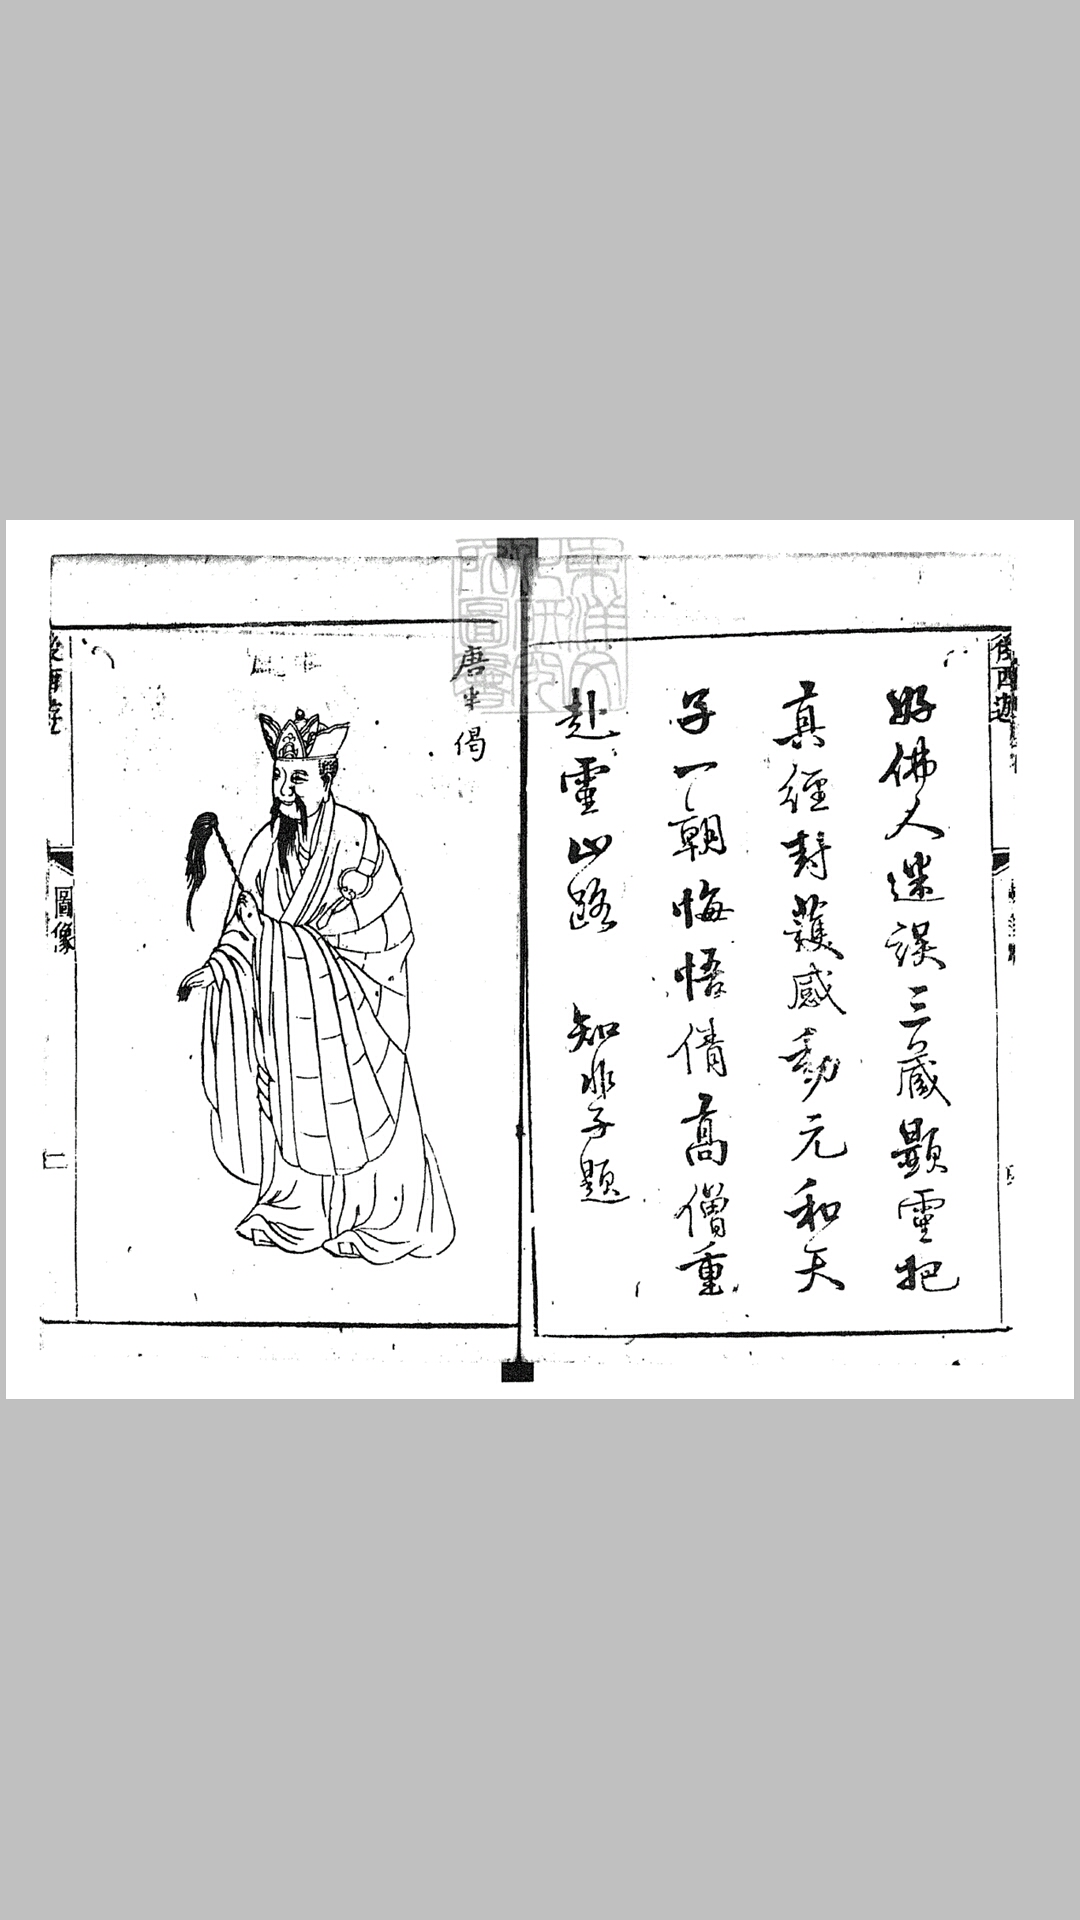 後西遊
好佛人迷誤三藏顯靈把
真經封護感動元和天
子一朝悔悟倩高僧重
赴靈山路
知非子題
唐半偈
圖像
二